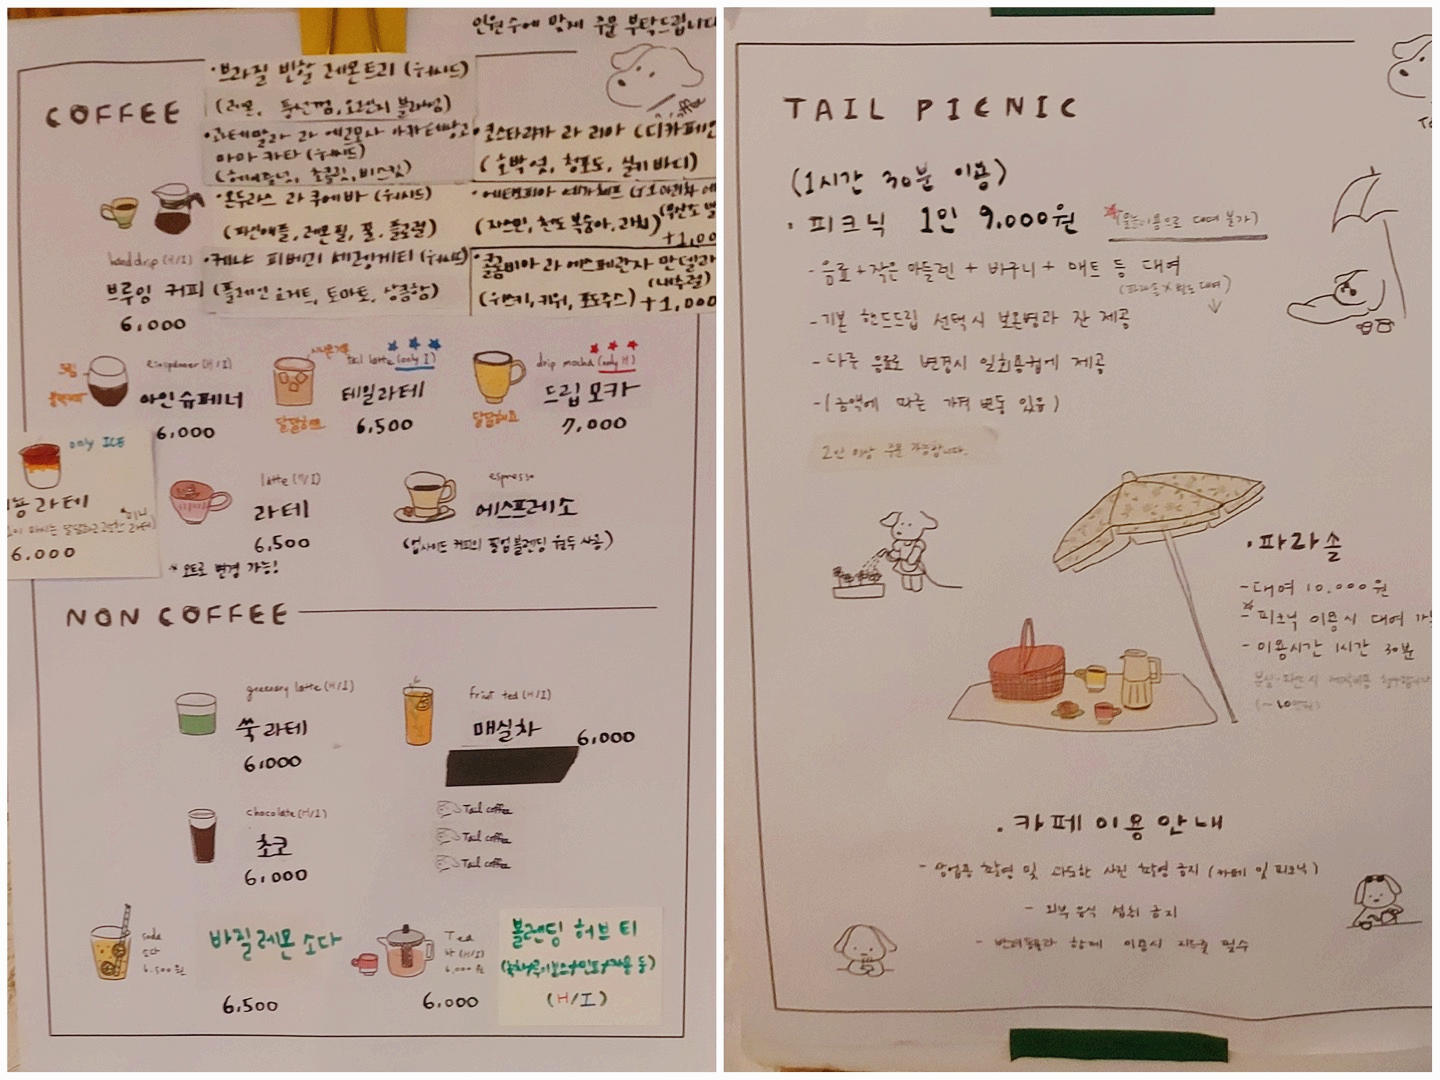 인원수에 맞게 주문 부탁드립니다
COFFEE
·브라질 빈할 레몬트리 (워시드)
(레몬, 풍선껌, 오렌지 블라썸)
·과테말라 라 에르모사
마마 카타 (워시드)
(헤이즐넛, 초콜릿, 비스킷)
·온두라스 라 쿠에바 (워시드)
(파인애플, 레몬필, 꿀, 플로럴)
·케냐 피베리 세렝게티 (워시드)
(플레인 요거트, 토마토, 상큼함)
·코스타리카 라 리아 (디카페인
(호박엿, 청포도, 실키 바디)
·에티오피아 예가체프
(자스민, 천도 복숭아, 리치)
+1,00
·콜롬비아 라 에스페란자 만델라
(내추럴)
(위스키, 키위, 포도주스) +1,000
hand drip (H/I)
브루잉 커피
6,000
크림
블랙커피
einspanner (H/I)
아인슈페너
6,000
시나몬가루
tail latte (only I)
테일라떼
달달해요
6,500
drip mocha (only H)
드립모카
달달해요
7,000
only ICE
라떼
6.000
latte (H/I)
라떼
6,500
* 오트로 변경 가능!
espresso
에스프레소
(업사이드 커피의 풀업블렌딩 원두 사용)
NON COFFEE
greenary latte (H/I)
쑥라떼
6,000
fruit tea (H/I)
매실차
6,000
chocolate (H/I)
초코
6,000
Tail coffee
Tail coffee
Tail coffee
soda
소다
6,500원
바질레몬 소다
6,500
Tea
차 (H/I)
6,000원
6,000
블렌딩 허브티
(H/I)
TAIL PICNIC
(1시간 30분 이용)
· 피크닉 1인 9,000원
- 음료 + 작은 마들렌 + 바구니 + 매트 등 대여
(파라솔 X 별도 대여)
- 기본 핸드드립 선택시 보온병과 잔 제공
- 다른 음료로 변경시 일회용컵에 제공
- (금액에 따른 가격 변동 있음)
2인 이상 주문 가능합니다.
· 파라솔
- 대여 10,000원
- 피크닉 이용시 대여 가
- 이용시간 1시간 30분
· 카페이용안내
- 상업용 촬영 및 과도한 사진 촬영 금지 (카페 및 피크닉)
- 외부음식 섭취 금지
- 반려동물과 함께 이용시 리드줄 필수